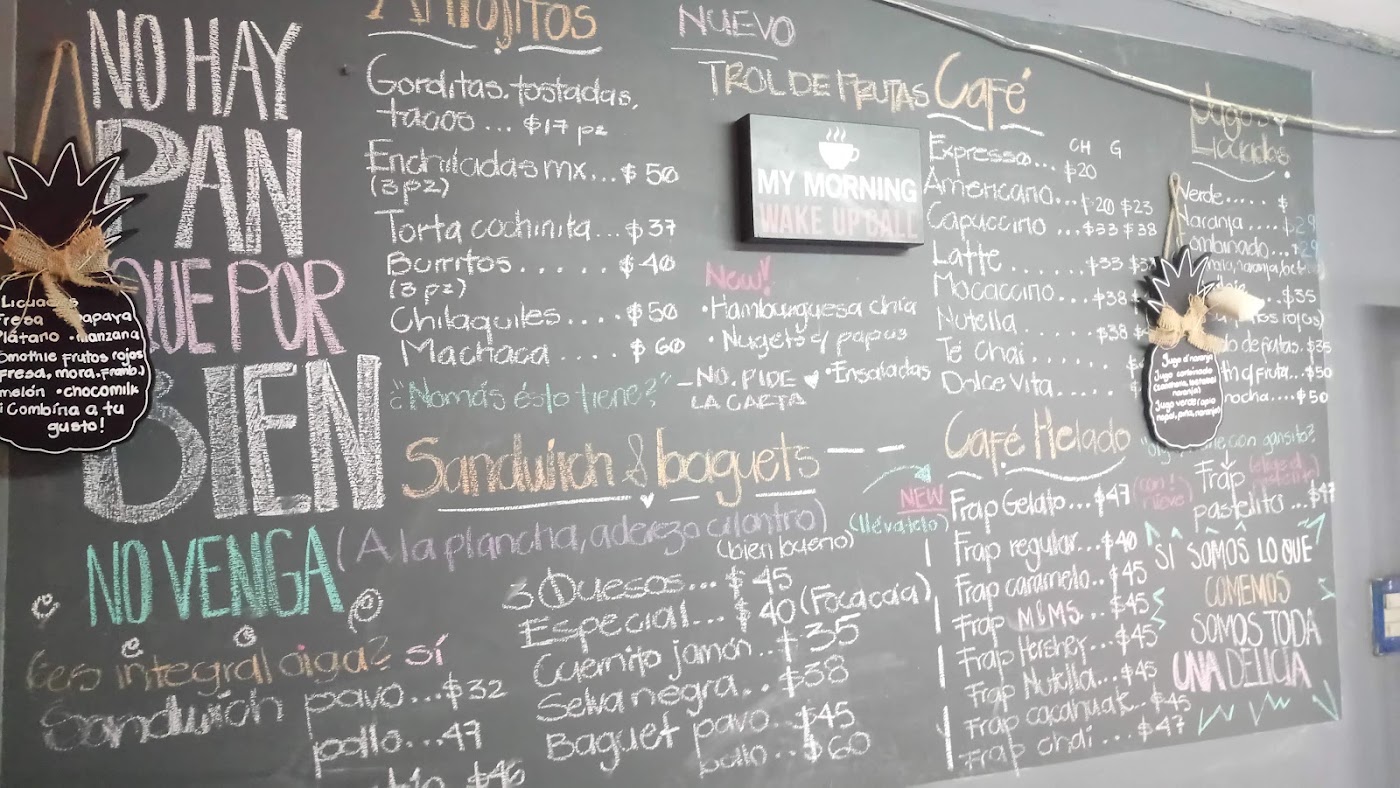 NO HAY
PAN
QUE POR
BIEN
NO VENGA
¿es integral oiga? sí
Sandwich pavo...$32
pollo...47
Licuados
Fresa papaya
Plátano • manzana
Smothie frutos rojos
(fresa, mora, framb.)
melón • chocomilk
¡Combina a tu
gusto!
Antojitos
Gorditas, tostadas,
tacos... $17 pz
Enchiladas mx...$50
(3 pz)
Torta cochinita...$37
Burritos......$40
(3 pz)
Chilaquiles....$50
Machaca.....$60
¿"Nomás ésto tiene?"
- NO, PIDE
LA CARTA
NUEVO
TROL DE FRUTAS
MY MORNING
WAKE UP CALL
New!
• Hamburguesa chía
• Nugets c/ papas
• Ensaladas
Sandwich & baguets
(A la plancha, aderezo cilantro)
(bien bueno)
3 Quesos...$45
Especial...$40 (Focaccia)
Cuernito jamón..$35
Selva negra..$38
Baguet pavo...$45
pollo..$60
NEW
(llévatelo)
Café
CH G
Expresso...$20
Americano...$20 $23
Capuccino...$33 $38
Latte.......$33
Mocaccino...$38
Nutella....$38
Té Chai.....
Dolce Vita.....
Café Helado
Frap Gelato..$47 (con! nieve)
Frap regular...$40
Frap caramelo..$45
Frap M&MS...$45
Frap Hersher..$45
Frap Nutella...$45
Frap cacahuate..$45
Frap chai...$47
Jugos y
Licuados
Verde.....$
Naranja....$29
Combinado....29
...$35
frutos rojos)
de frutas.$35
c/fruta...$50
$50
Jugo d'naranja
Jugo combinado
(zanahoria, betabel
naranja)
Jugo verde (apio
nopal, piña, naranja)
con gansito?
Frap (elige el
pastelito)
pastelito...$47
SI SOMOS LO QUE
COMEMOS
SOMOS TODA
UNA DELICIA